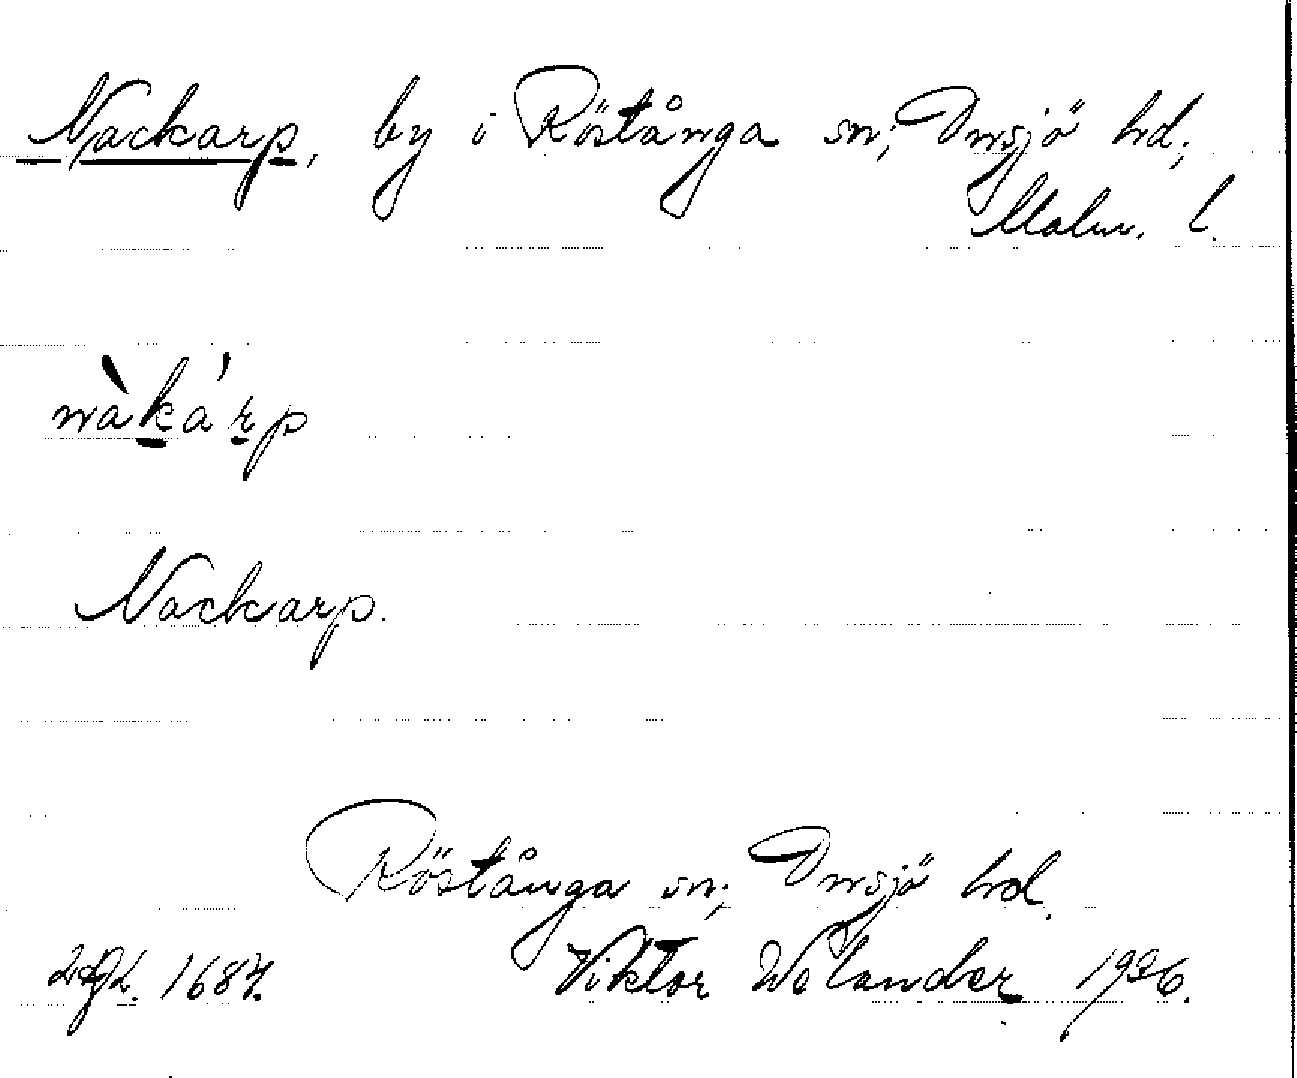 Nackarp, by i Röstånga sn; Onsjö hd;
Malm. l.
nàká'rp
Nackarp.
Röstånga sn; Onsjö hd.
1687. Viktor Welander 1926.